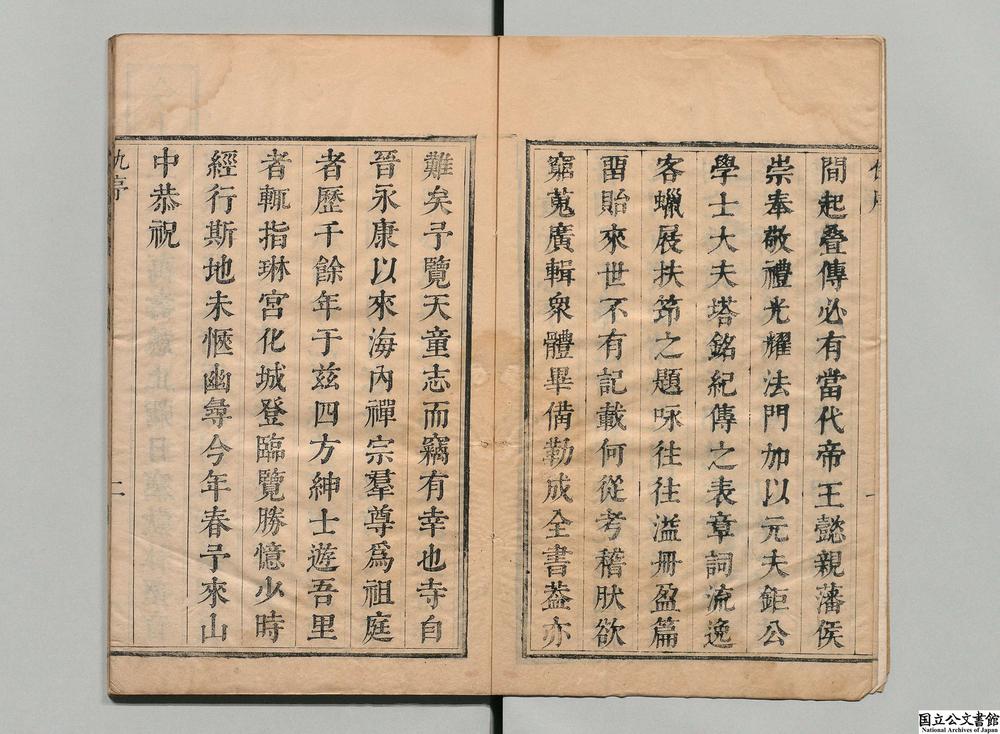 間起叠傳必有當代帝王懿親藩侯
崇奉敬禮光耀法門加以元夫鉅公
學士大夫塔銘紀傳之表章詞流逸
客蠟屐扶筇之題咏往往溢册盈篇
畱貽來世不有記載何從考稽肰欲
窮蒐廣輯衆體畢備勒成全書葢亦
難矣予覽天童志而竊有幸也寺自
晉永康以來海內禪宗羣尊爲祖庭
者歷千餘年于兹四方紳士遊吾里
者輒指琳宮化城登臨覽勝憶少時
經行斯地未愜幽尋今年春予來山
中恭祝
仇序
二
国立公文書館
National Archives of Japan